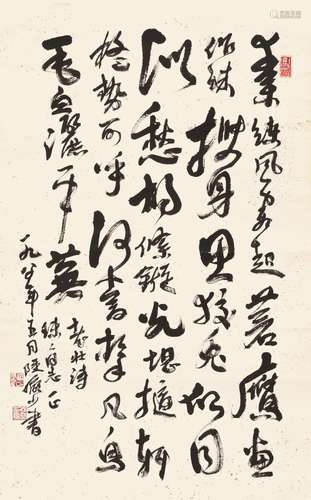 素練風霜起蒼鷹畫
作殊㩳身思狡兔側目
似愁胡絛鏇光堪擿軒
楹勢可呼何當擊凡鳥
毛血灑平蕪
杜詩
同志正
一九八年五月陸儼少書